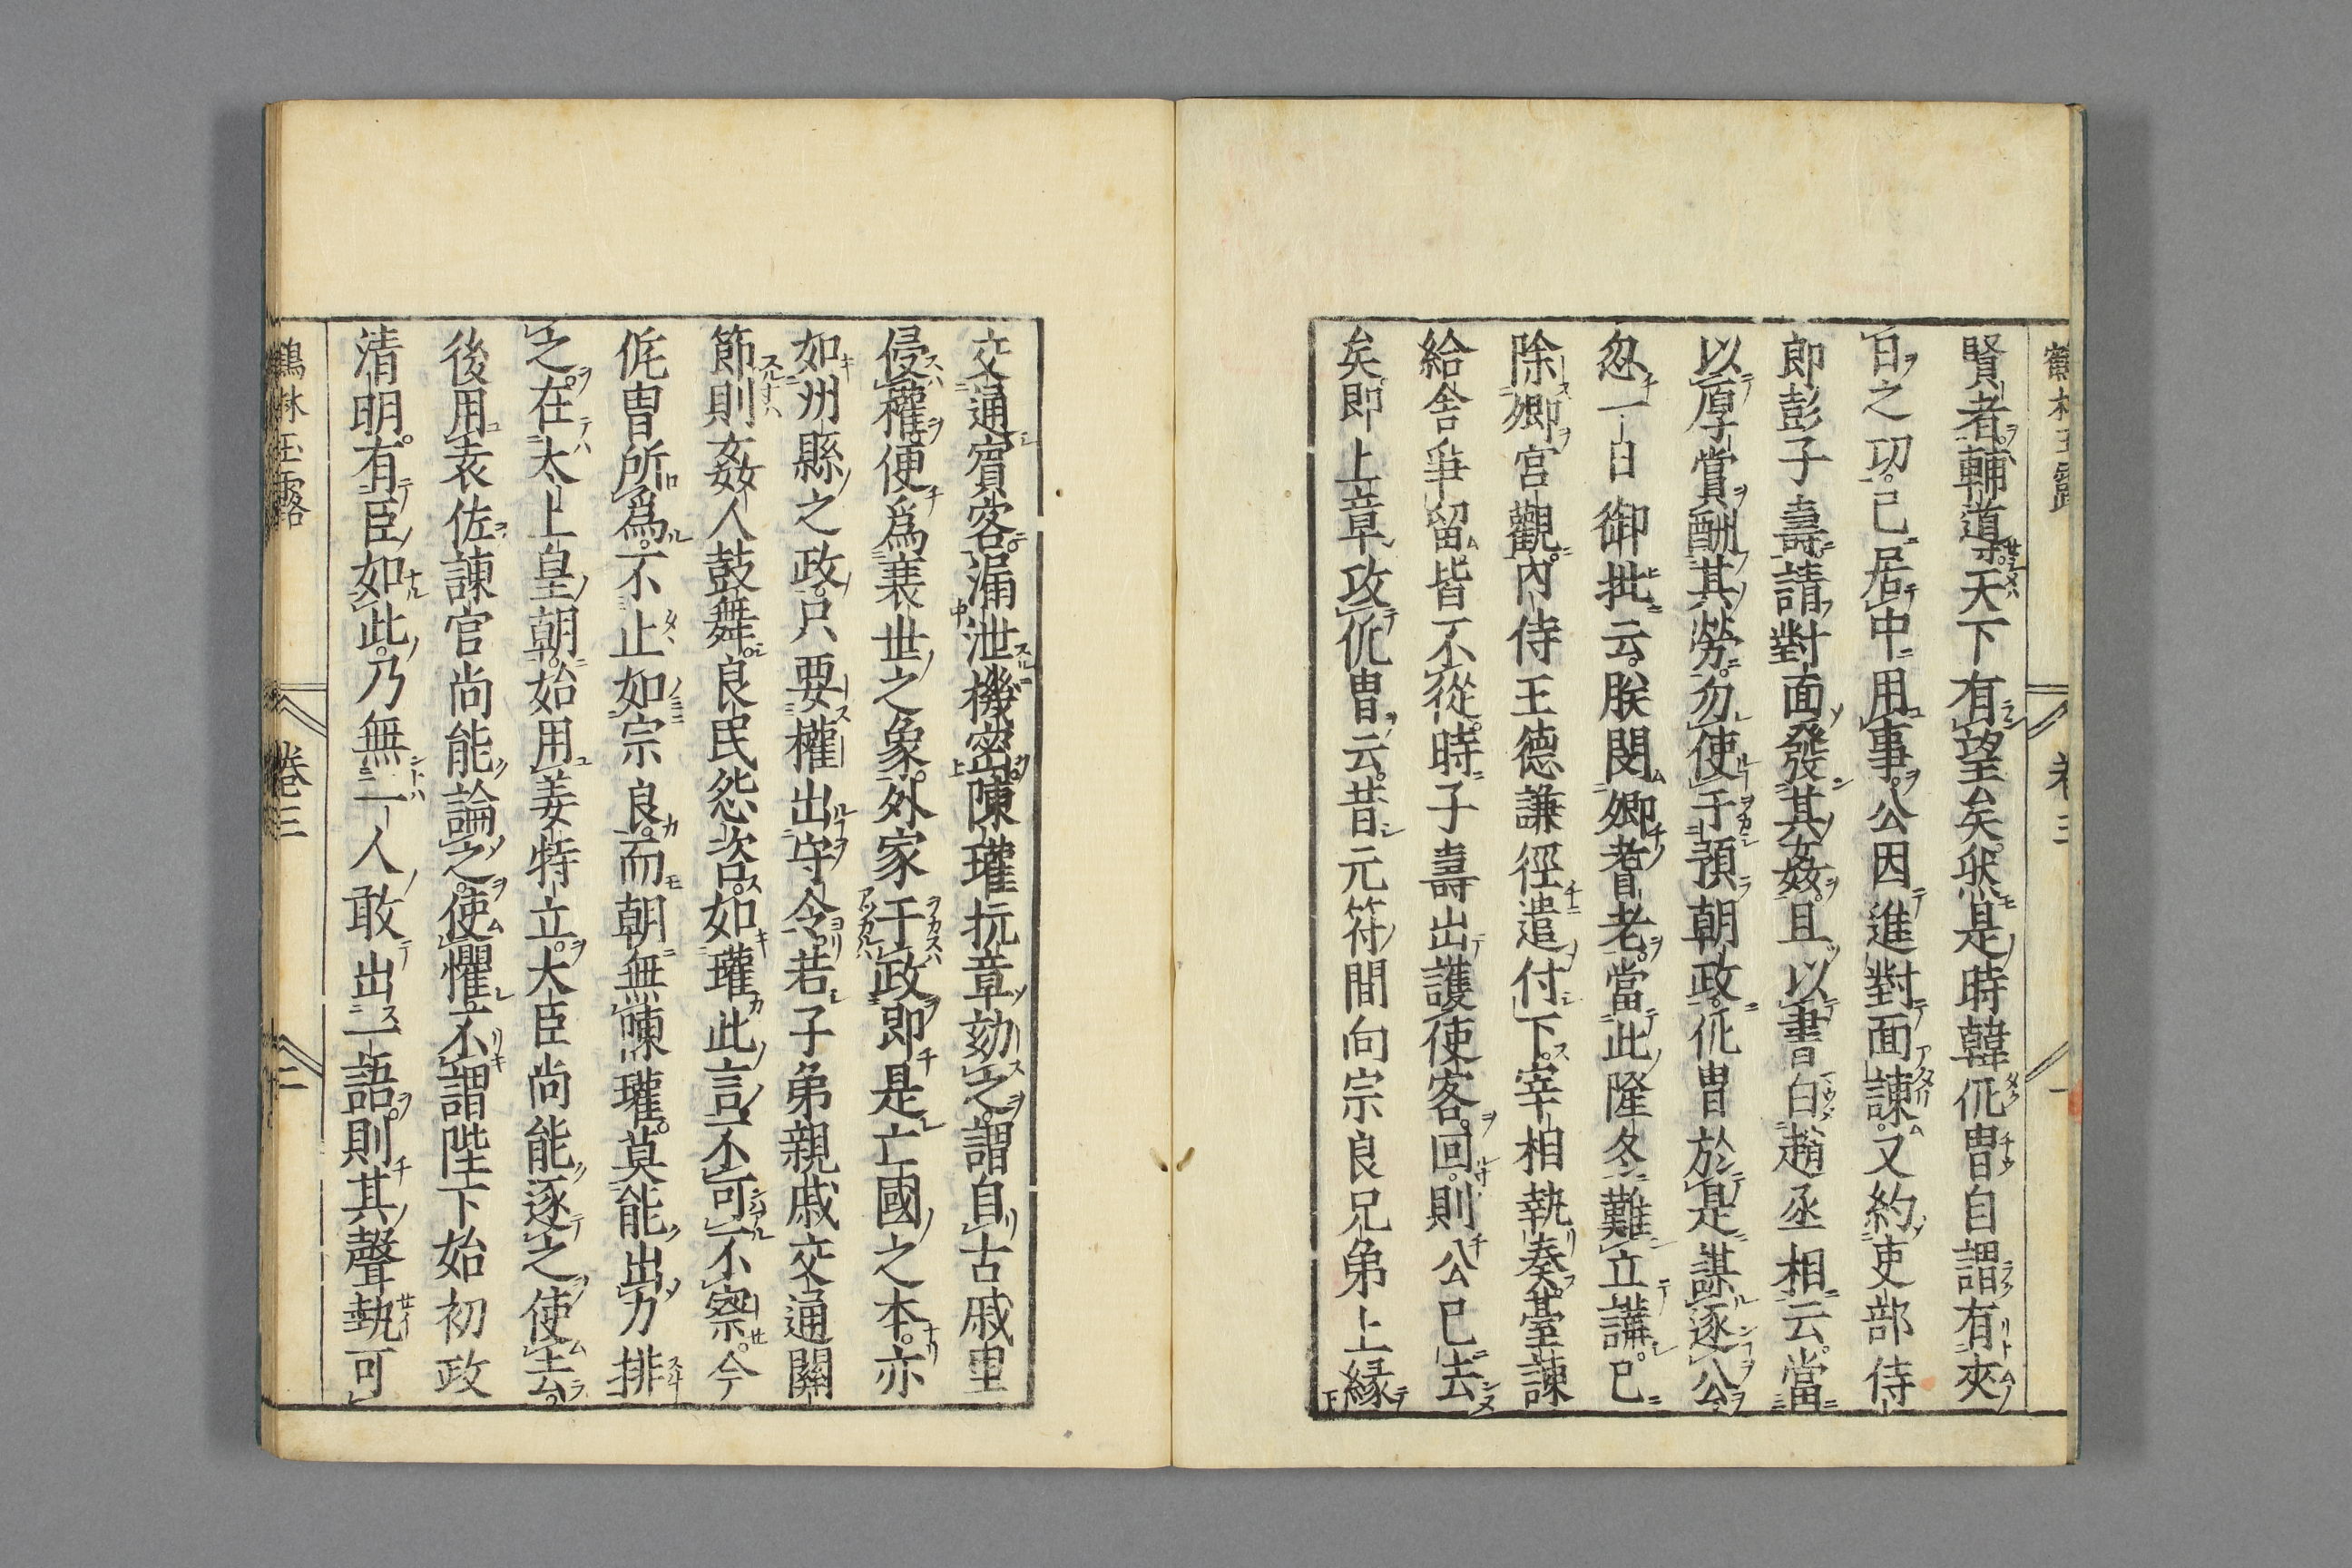 鶴林玉露
卷三
一
賢者輔導天下有望矣然是時韓侂冑自謂有夾
日之功已居中用事公因進對面諫又約吏部侍
郎彭子壽請對面發其姦且以書白趙丞相云當
以厚賞酬其勞勿使干預朝政侂冑於是謀逐公
忽一日御批云朕閔卿耆老當此隆冬難立講已
除卿宮觀內侍王德謙徑遣付下宰相執奏臺諫
給舍爭留皆不從時子壽出護使客回則公已去
矣即上章攻侂冑云昔元符間向宗良兄弟上緣
交通賓客漏泄機密陳瓘抗章劾之謂自古戚里
侵權便爲衰世之象外家干政即是亡國之本亦
如州縣之政只要權出守令若子弟親戚交通關
節則姦人鼓舞良民怨咨如瓘此言不可不察今
侂冑所爲不止如宗良而朝無陳瓘莫能出力排
之在太上皇朝始用姜特立大臣尚能逐之使去
後用袁佐諫官尚能論之使懼不謂陛下始初政
清明有臣如此乃無一人敢出一語則其聲執可
鶴林玉露
卷三
二